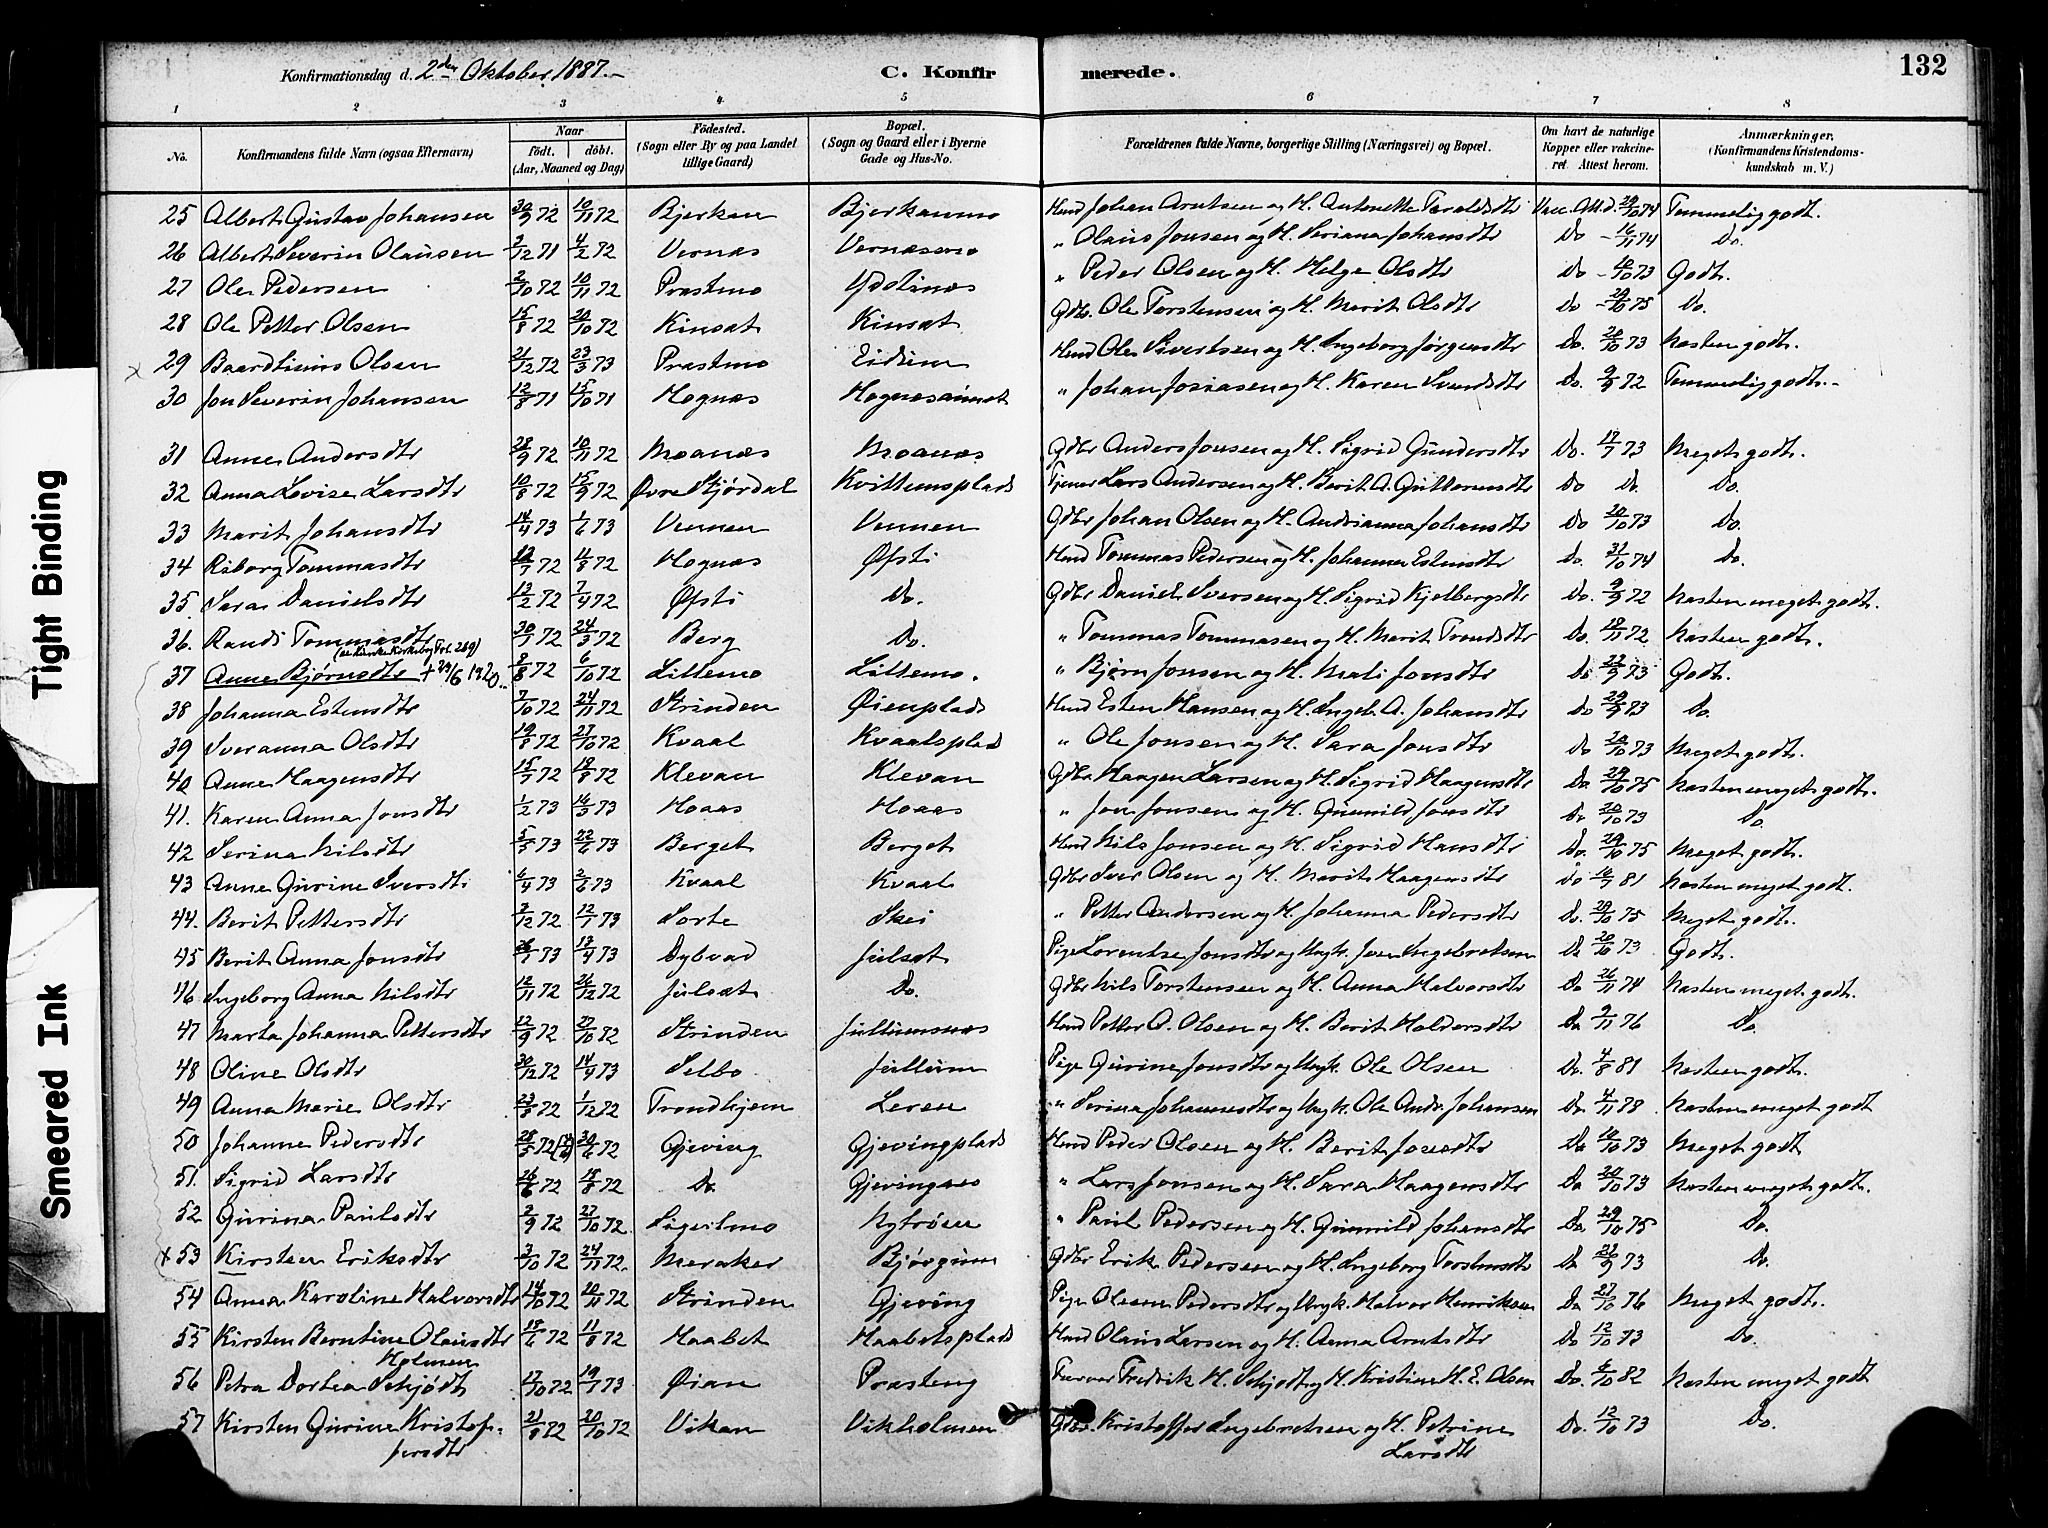 132
Konfirmationsdag d. 2den Oktober 1887. C. Konfirmerede.
1 2 3 4 5 6 7 8
No. Konfirmandens fulde Navn (ogsaa Efternavn) Naar födt. döbt. (Aar, Maaned og Dag) Födested. (Sogn eller By og paa Landet tillige Gaard) Bopæl. (Sogn og Gaard eller i Byerne Gade og Hus-No. Forældrenes fulde Navne, borgerlige Stilling (Næringsvei) og Bopæl. Om havt de naturlige Kopper eller vakcineret. Attest herom. Anmærkninger. (Konfirmandens Kristendomskundskab m. V.)
25 Albert Gustav Johansen 30/9 72 10/11 72 Bjerkan Bjerkanmo Husmd Johan Arntsen og H. Antonette Taraldsdtr Vacc. Att. d. 29/10 74 Temmelig godt.
26 Albert Severin Olausen 2/12 71 4/2 72 Vernæs Vernæsmo " Olaus Jonsen og H. Seriana Johansdtr Do - 16/11 74 Do.
27 Ole Pedersen 2/10 72 10/11 72 Præstmo Ydstines " Peder Olsen og H. Helge Olsdtr Do - 10/10 73 Godt.
28 Ole Petter Olsen 15/8 72 20/10 72 Kinsæt Kinsæt Gdbr. Ole Torstensen og H. Marit Olsdtr Do - 29/10 75 Do.
x 29 Baard Olsen 21/12 72 23/3 73 Præstmo Eidum Husmd Ole Sivertsen og H. Ingeborg Jørgensdtr Do. 20/10 73 Næsten godt.
30 Jon Severin Johansen 12/8 71 15/10 71 Hognæs " Johan Josiasen og H. Karen Svendsdtr Do. 9/9 72 Temmelig godt.
31 Anne Andersdtr 28/9 72 10/11 72 Moanæs Moanæs Gdbr Anders Jonsen og H. Sigrid Gundersdtr Do. 17/7 73 Meget godt.
32 Anna Lovise Larsdtr 10/8 72 15/9 72 Øvre Stjørdal Kvittemsplads Tjener Lars Andersen og H. Berit A. Guttormsdtr Do Do. Do.
33 Marit Johansdtr 14/4 73 1/6 73 Vennen Vennen Gdbr Johan Olsen og H. Andrianna Johansdtr Do 20/10 73 Do.
34 Raborg Tommasdtr 12/7 72 4/8 72 Hognæs Øfsti Husmd Tommas Pedersen og H. Johanna Estensdtr Do. 31/10 74 Do.
35. Sara Danielsdtr 13/2 72 7/4 72 Øfsti Do. Gdbr Daniel Iversen og H. Sigrid Kjelbergsdtr Do. 9/9 72 Næsten meget godt.
36. Randi Tommasdtr 30/1 72 24/3 72 Berg Do. " Tommas Tommasen og H. Marit Trondsdtr Do. 18/11 72 Næsten godt.
37 Anne Bjørnsdtr + 29/6 1920. 2/8 72 6/10 72 Littemo Littemo. " Bjørn Jonsen og H. Mali Jonsdtr Do. 23/9 73 Godt.
38 Johanna Estensdtr 7/10 72 24/11 72 Strinden Øienplads Husmd Esten Hansen og H. Ingeb. A. Johansdtr Do 29/9 73 Do.
39 Iveranna Olsdtr 19/8 72 27/10 72 Kvaal Kvaalsplad " Ole Jonsen og H. Sara Jonsdtr Do 20/10 73 Meget godt.
40 Anne Haagensdtr 15/7 72 18/8 72 Klevan Klevan Gdbr. Haagen Larsen og H. Sigrid Haagensdtr Do 29/10 75 Næsten meget godt.
41. Karen Anna Jonsdtr 1/2 73 16/3 73 Hoaas Hoaas " Jon Jonsen og H. Gunnild Jonsdtr Do 20/10 73 Do.
42 Serina Nilsdtr 5/5 73 22/6 73 Berget Berget Husmd Nils Jonsen og H. Sigrid Hansdtr Do. 29/10 75 Meget godt.
43 Anne Gurine Iversdtr 6/4 73 2/6 73 Kvaal Kvaal Gdbr Iver Olsen og H. Marit Haagensdtr Do 16/7 81 Næsten meget godt.
44. Berit Pettersdtr 3/12 72 12/1 73 Sorte Skei " Petter Andersen og H. Johanna Pedersdtr Do. 29/10 75 Meget godt.
45 Berit Anna Jonsdtr 26/1 73 13/4 73 Dybvad Julsæt Pige Lorentse Jonsdtr og Ungk. Jon Ingebretsen Do 20/10 73 Godt.
46 Ingeborg Anna Nilsdtr 12/11 72 26/12 72 Julsæt Do. Gdbr Nils Torstensen og H. Anna Halvorsdtr Do 26/11 74 Næsten meget godt.
47 Marta Johanna Pettersdtr 12/9 72 27/10 72 Strinden Jullumsnæs Husmd Petter O. Olsen og H. Berit Haldorsdtr Do 9/11 76 Do.
48 Oline Olsdtr 30/12 72 14/4 73 Selbo Jullum Pige Gurine Jonsdtr og Ungk. Ole Olsen Do. 4/8 81 Næsten godt.
49 Anna Marie Olsdtr 23/8 72 1/12 72 Trondhjem Leren " Serina Johannesdtr og Ungk. Ole Andr. Johansen Do. 4/11 78 Næsten meget godt
50 Johanne Pedersdtr 28/5 72 30/6 72 Gjeving Gjevingplads Husmd Peder Olsen og H. Berit Jonsdtr Do 10/10 73 Meget godt
51. Sigrid Larsdtr 26/6 72 18/8 72 Do. Gjevingnes " Lars Jonsen og H. Sara Haagensdtr Do 20/10 73 Næsten meget godt.
52 Gurina Paulsdtr 2/9 72 27/10 72. Nytrøen " Paul Pedersen og H. Gunnild Johansdtr Do 29/10 75 Do.
x 53 Kirsten Eriksdtr 3/10 72 24/11 72. Meraker Bjørgum Gdbr Erik Pedersen og H. Ingeborg Torstensdtr Do 23/9 73 Do.
54 Anna Karoline Halvorsdtr 14/10 72 10/11 72 Strinden Gjeving Pige Olsena Pedersdtr og Ungk. Halvor Henriksen Do 27/10 76 Meget godt.
55 Kirsten Berntine Olausdtr 18/6 72 11/8 72 Haabet Haabetsplads Husmd Olaus Larsen og H. Anna Arntsdtr Do 12/10 73 Do.
Holmen
56 Petra Dortea Schjødt 17/10 72 19/1 73 Øian Præsteng Farver Fredrik H. Schjødt og H. Kristine H. E. Olsen Do. 6/10 82 Næsten meget godt
57 Kirsten Gurine Kristof- 21/8 72 20/10 72 Vikan Vikholmen Gdbr. Kristoffer Ingebretsen og H. Petrine Do. 12/10 73 Do.
fersdtr Larsdtr
Tight Binding
Smeared Ink